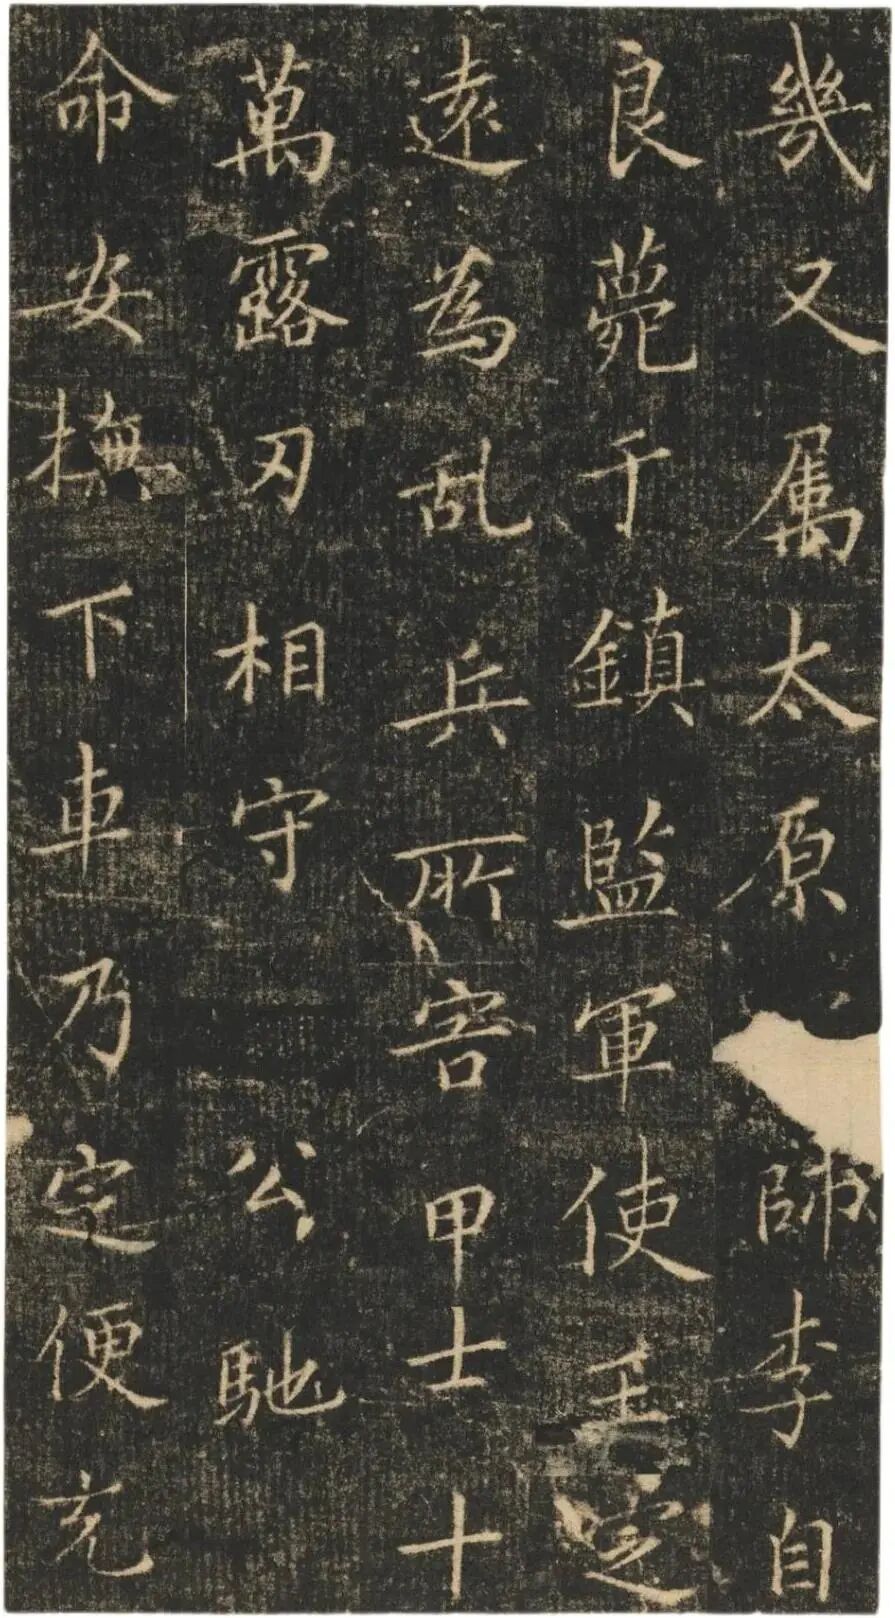 幾又属太原師李自
良薨于鎮監軍使王定
遠為乱兵所害甲士十
萬露刃相守公馳
命安撫下車乃定便充